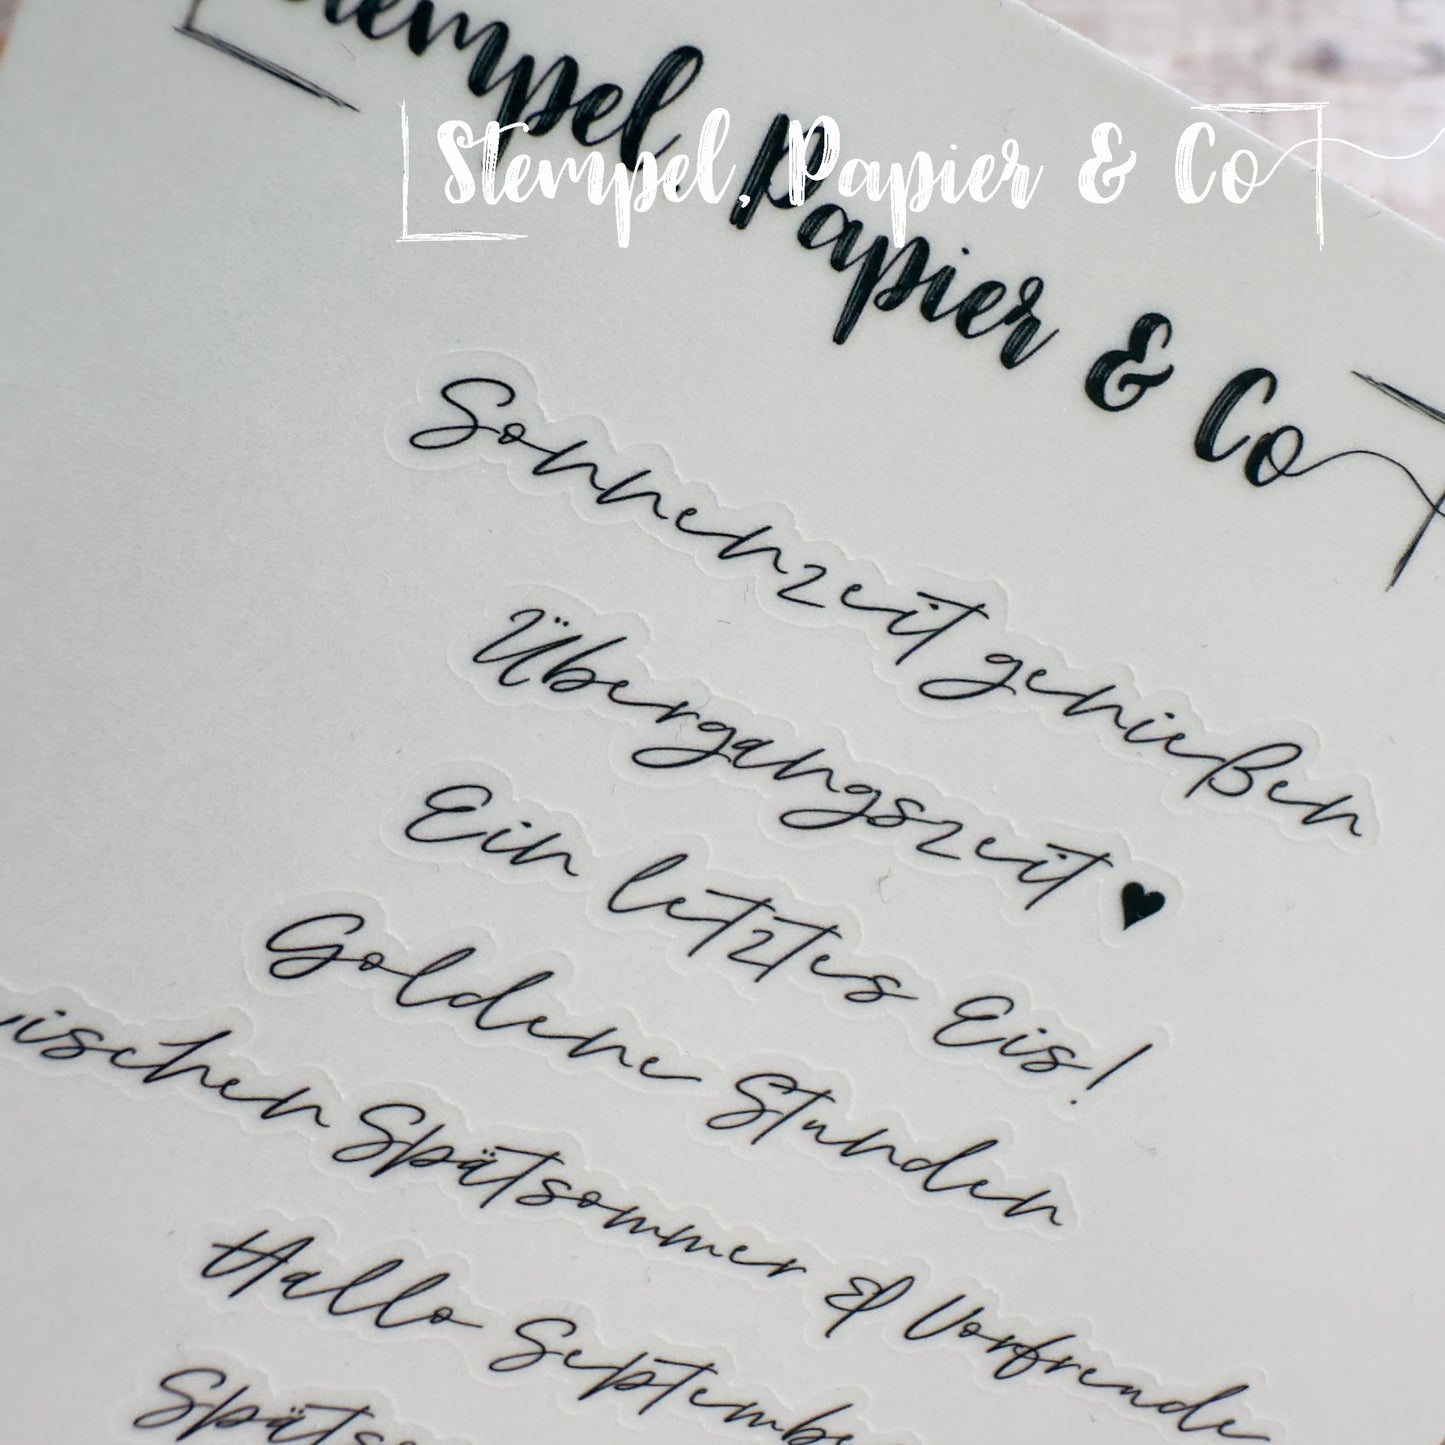 Stempel, Papier & Co
Stempel, Papier & Co
Sonnenzeit genießen
Übergangszeit ♥
Ein letztes Eis!
Goldene Stunden
ischen Spätsommer & Vorfreude
Hallo September
Späts